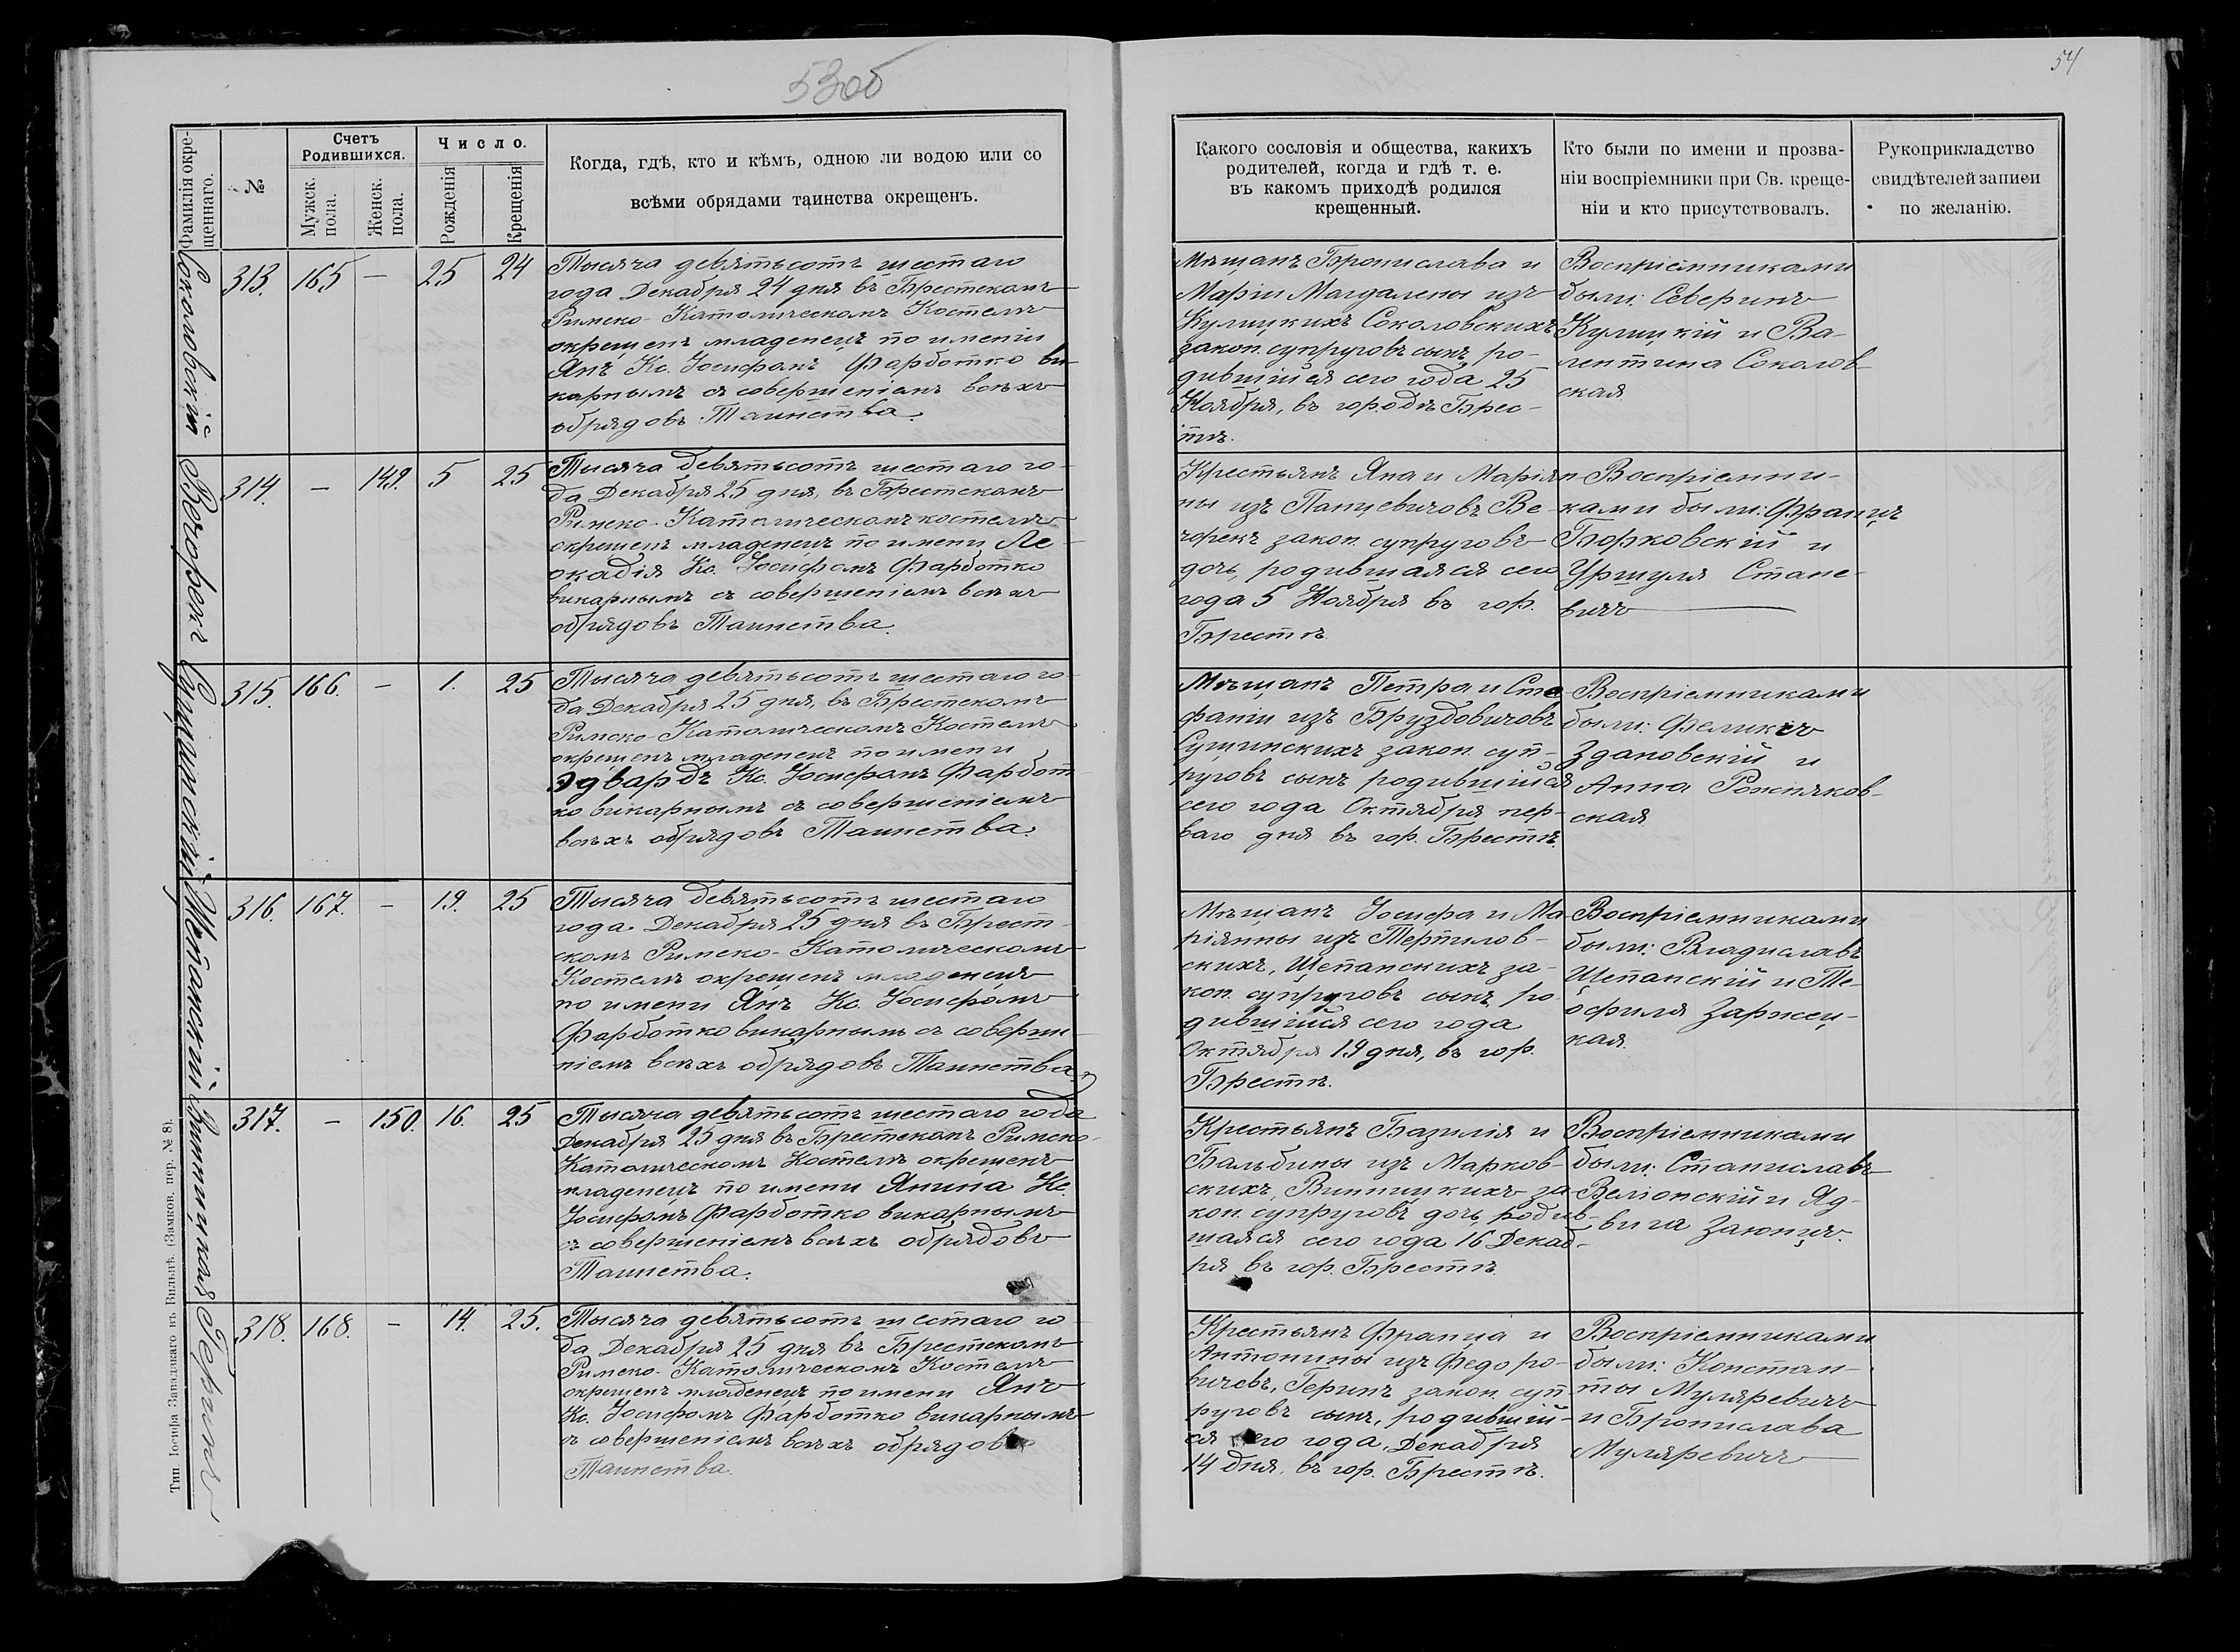 53об
54
Фамилія окре-
щеннаго.
№
Счетъ
Родившихся.
Мужск.
пола.
Женск.
пола.
Число.
Рожденія
Крещенія
Когда, гдѣ, кто и кѣмъ, одною ли водою или со
всѣми обрядами таинства окрещенъ.
Какого сословія и общества, какихъ
родителей, когда и гдѣ т. е.
въ какомъ приходѣ родился
крещенный.
Кто были по имени и прозва-
ніи воспріемники при Св. креще-
ніи и кто присутствовалъ.
Рукоприкладство
свидѣтелей записи
по желанію.
Соколовскій
313. 165 — 25 24
Тысяча девятьсотъ шестаго
года Декабря 24 дня въ Брестскомъ
Римско-Католическомъ Костелѣ
окрещенъ младенецъ по имени
Янъ Кс. Іосифомъ Фарботко ви
карнымъ съ совершеніемъ всѣхъ
обрядовъ Таинства.
Мѣщанъ Бронислава и
Маріи Магдалены изъ
Кулицкихъ Соколовскихъ
закон. супруговъ сынъ, ро-
дившійся сего года 25
Ноября, въ городѣ Брес-
тѣ.
Воспріемниками
были: Северинъ
Кулицкій и Ва-
лентина Соколов-
ская
Вечорекъ
314. — 149. 5 25
Тысяча девятьсотъ шестаго го-
да Декабря 25 дня, въ Брестскомъ
Римско-Католическомъ костелѣ
окрещенъ младенецъ по имени Ле-
окадія Кс. Іосифомъ Фарботко
викарнымъ съ совершеніемъ всѣхъ
обрядовъ Таинства.
Крестьянъ Яна и Маріян-
ны изъ Панцевичовъ Ве-
чорекъ закон. супруговъ
дочь, родившаяся сего
года 5 Ноября въ гор.
Брестѣ.
Воспріемни-
ками были: Францъ
Борковскій и
Уршуля Стане-
вичъ
Сущинскій
315. 166. — 1. 25
Тысяча девятьсотъ шестаго го-
да Декабря 25 дня, въ Брестскомъ
Римско-Католическомъ Костелѣ
окрещенъ младенецъ по имени
Эдвардъ Кс. Іосифомъ Фарбот
ко викарнымъ съ совершеніемъ
всѣхъ обрядовъ Таинства.
Мѣщанъ Петра и Сте-
фаніи изъ Бруздовичовъ
Сущинскихъ закон. суп-
руговъ сынъ родившійся
сего года Октября пер-
ваго дня въ гор. Брестѣ.
Воспріемниками
были: Феликсъ
Здановскій и
Анна Рожняков-
ская
Щепанскій
316. 167. — 19. 25
Тысяча девятьсотъ шестаго
года Декабря 25 дня въ Брест-
скомъ Римско-Католическомъ
Костелѣ окрещенъ младенецъ
по имени Янъ Кс. Іосифомъ
Фарботко викарнымъ съ соверше
ніемъ всѣхъ обрядовъ Таинства.
Мѣщанъ Іосифа и Ма-
ріянны изъ Терпилов-
скихъ, Щепанскихъ за-
кон. супруговъ сынъ, ро-
дившійся сего года
Октября 19 дня, въ гор.
Брестѣ.
Воспріемниками
были: Владиславъ
Щепанскій и Те-
офиля Заржец-
кая.
Винницкая
317. — 150. 16. 25
Тысяча девятьсотъ шестаго года
Декабря 25 дня въ Брестскомъ Римско-
Католическомъ Костелѣ окрещенъ
младенецъ по имени Янина Кс.
Іосифомъ Фарботко викарнымъ
съ совершеніемъ всѣхъ обрядовъ
Таинства.
Крестьянъ Базилія и
Бальбины изъ Марков-
скихъ, Винницкихъ за-
кон. супруговъ дочь, родив-
шаяся сего года 16 Декаб-
ря въ гор. Брестѣ.
Воспріемниками
были: Станиславъ
Веліонскій и Яд-
вига Заіонцъ.
Геринъ
318. 168. — 14. 25.
Тысяча девятьсотъ шестаго го-
да Декабря 25 дня въ Брестскомъ
Римско-Католическомъ Костелѣ
окрещенъ младенецъ по имени Янъ
Кс. Іосифомъ Фарботко викарнымъ
съ совершеніемъ всѣхъ обрядовъ
Таинства.
Крестьянъ Франца и
Антонины изъ Федоро-
вичевъ, Геринъ закон. суп-
руговъ сынъ, родившій-
ся сего года, Декабря
14 дня, въ гор. Брестѣ.
Воспріемниками
были: Констан-
ты Муляревичъ
и Бронислава
Муляревичъ
Тип. Іосифа Завадзкаго въ Вильнѣ. (Замков. пер. № 8).